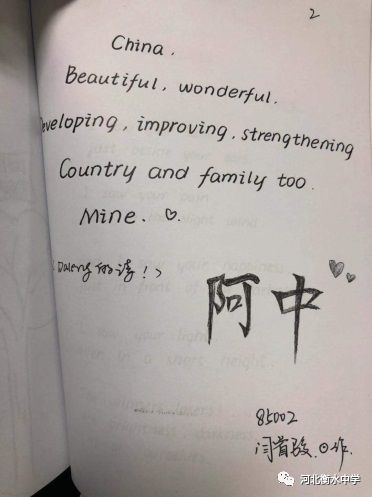 2
China.
Beautiful, wonderful.
Developing, improving, strengthening
Country and family too.
Mine. ♡.
阿中
85002
河北衡水中学